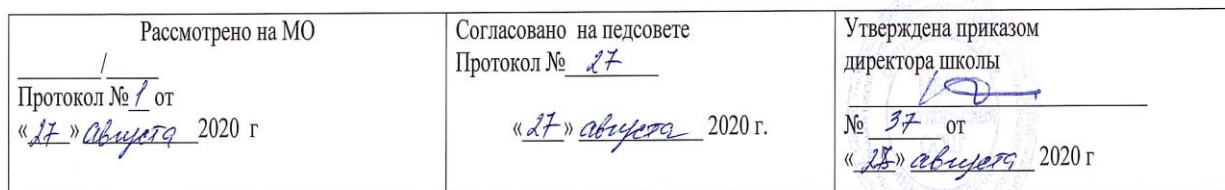 Рассмотрено на МО
________/_____
Протокол № 1 от
« 27 » августа 2020 г
Согласовано на педсовете
Протокол № 27
« 27 » августа 2020 г.
Утверждена приказом
директора школы
№ 37 от
« » августа 2020 г